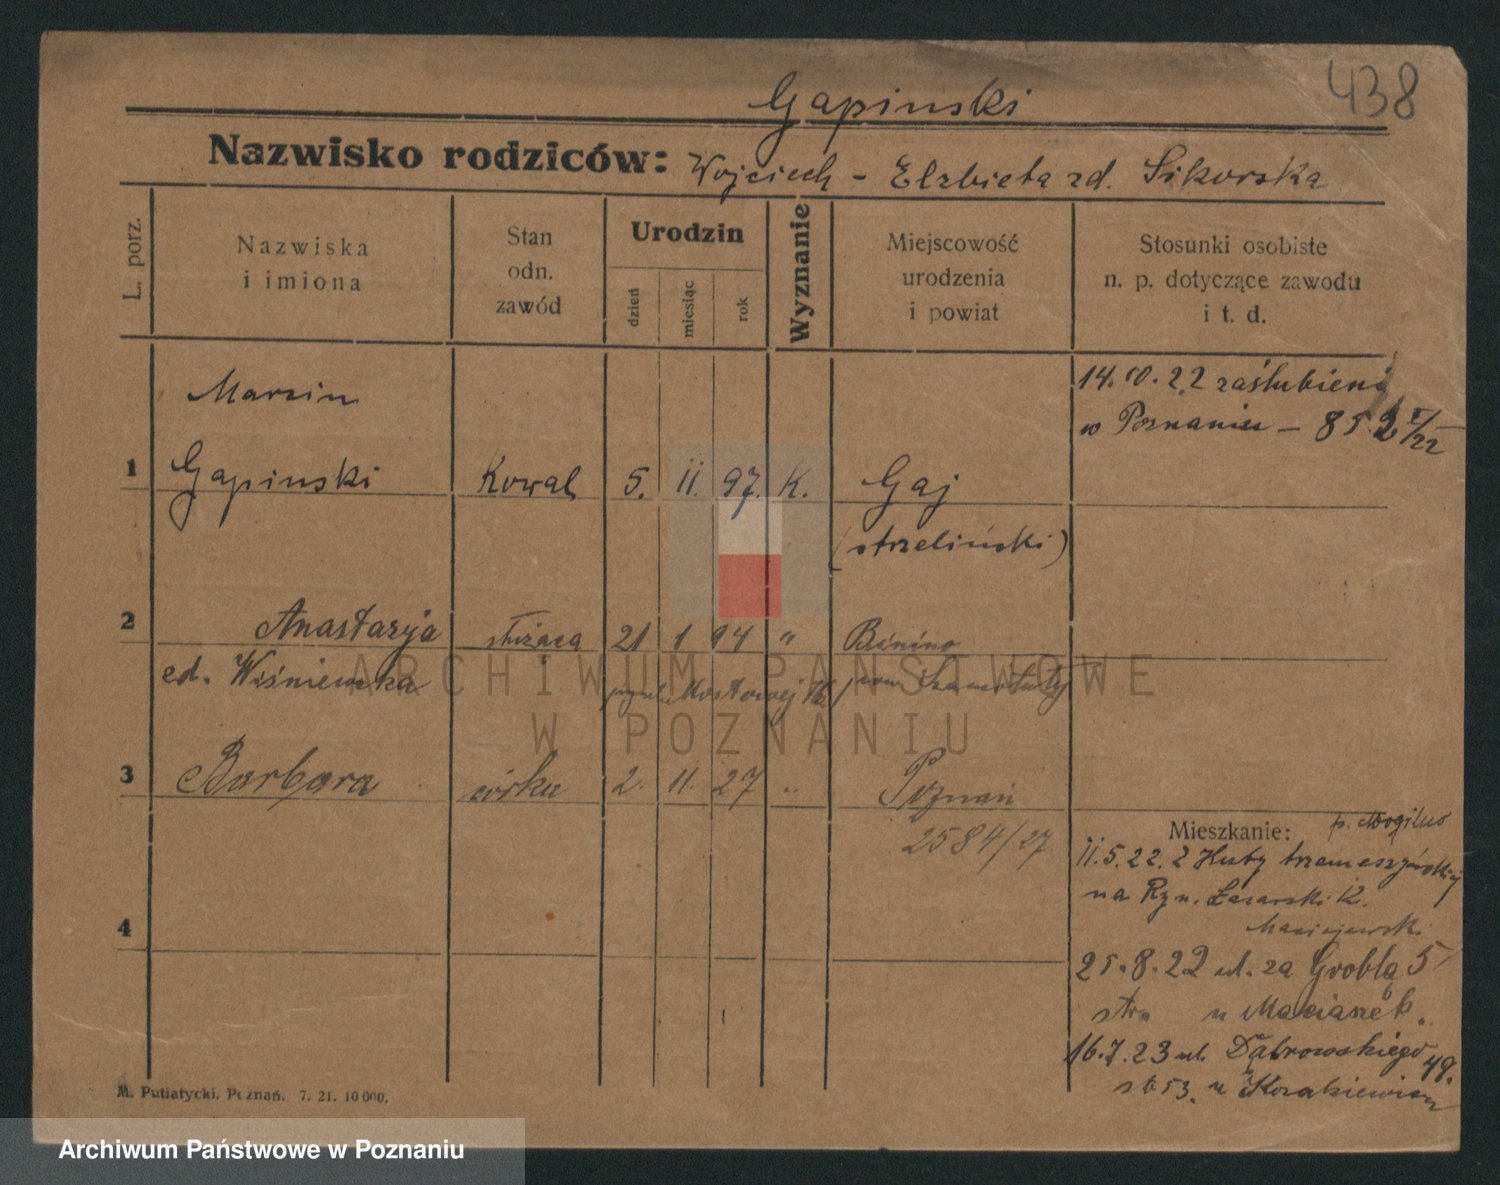 438
Gapinski
Nazwisko rodziców: Wojciech - Elzbieta zd. Sikorska
L. porz.
Nazwiska i imiona
Stan odn. zawód
Urodzin
dzień
miesiąc
rok
Wyznanie
Miejscowość urodzenia i powiat
Stosunki osobiste n. p. dotyczące zawodu i t. d.
14.10.22 zaślubieni
w Poznaniu - 852
Marcin
1 Gapinski Kowal 5. II. 97. K. Gaj
(strzeliński)
2 Anastazja służąca 21 1 94 " Binino
zd. Wiśniewska pow. Szamotuły
3 Barbara córka 2. 11. 27 " Poznań
2584/27
4
Mieszkanie: p. Mogilno
11.5.22. z Huty trzemeszyńskiej
na Ryn. Łazarski 12.
Maciejewski
25.8.22 ul. za Groblą 5
u Maciaszek.
16.7.23 ul. Dąbrowskiego 49.
u Korakiewicz
M. Putiatycki. Poznań. 7. 21. 10 000.
ARCHIWUM PAŃSTWOWE
W POZNANIU
Archiwum Państwowe w Poznaniu